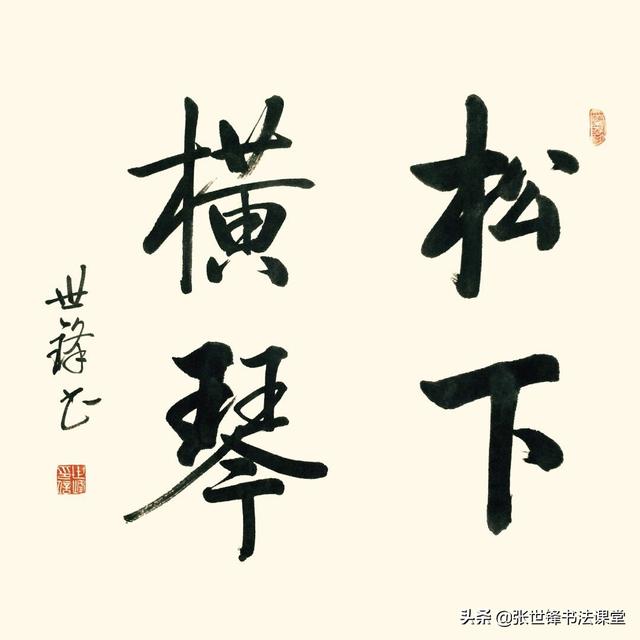 松下
橫琴
世鋒书
头条 @张世锋书法课堂